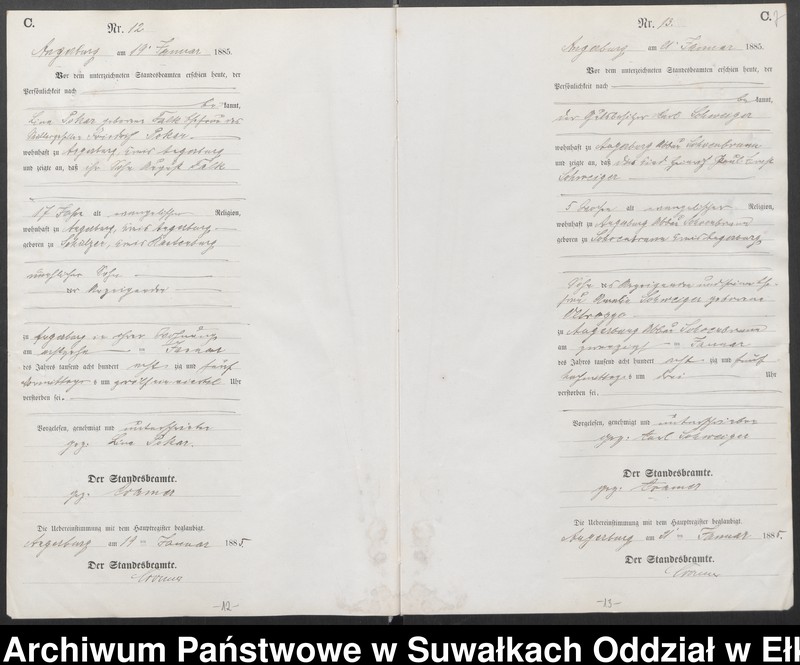 C.
Nr. 12
Angerburg am 19ten Januar 1885.
Vor dem unterzeichneten Standesbeamten erschien heute, der
Persönlichkeit nach
be kannt,
Line Pekar geborene Falk Ehefrau des
Friedrich Pekar
wohnhaft zu Angerburg, Kreis Angerburg
und zeigte an, daß ihr Sohn August Falk
17 Jahre alt evangelischer Religion,
wohnhaft zu Angerburg, Kreis Angerburg
geboren zu Kreis Rastenburg
unehelicher Sohn
der Anzeigenden
zu Angerburg in ihrer Wohnung
am achtzehn ten Januar
des Jahres tausend acht hundert acht zig und fünf
Vormittags um zwölf ein viertel Uhr
verstorben sei.
Vorgelesen, genehmigt und unterschrieben
gez. Line Pekar.
Der Standesbeamte.
gez. Kramer
Die Uebereinstimmung mit dem Hauptregister beglaubigt.
Angerburg am 19ten Januar 1885.
Der Standesbeamte.
-12-
C.
Nr. 13.
Angerburg am 21ten Januar 1885.
Vor dem unterzeichneten Standesbeamten erschien heute, der
Persönlichkeit nach
be kannt,
der Carl Schweiger
wohnhaft zu Angerburg Abbau
und zeigte an, daß das Kind
Schweiger
5 Wochen alt evangelischer Religion,
wohnhaft zu Angerburg Abbau
geboren zu Kreis Angerburg
Sohn des Anzeigenden und seiner Ehe-
frau Amalie Schweiger geborene
zu Angerburg Abbau
am zwanzigsten Januar
des Jahres tausend acht hundert acht zig und fünf
Nachmittags um drei Uhr
verstorben sei.
Vorgelesen, genehmigt und unterschrieben
gez. Carl Schweiger
Der Standesbeamte.
gez. Kramer
Die Uebereinstimmung mit dem Hauptregister beglaubigt.
Angerburg am 21ten Januar 1885.
Der Standesbeamte.
-13-
Archiwum Państwowe w Suwałkach Oddział w Ełk